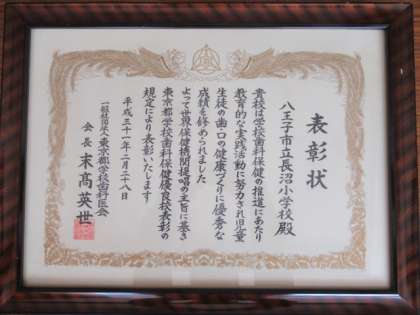 表彰状
八王子市立長沼小学校殿
貴校は学校歯科保健の推進にあたり
教育的な実践活動に努力され児童
生徒の歯・口の健康づくりに優秀な
成績を修められました
よって世界保健機関提唱の主旨に基き
東京都学校歯科保健優良校表彰の
規定により表彰いたします
平成三十一年二月二十八日
一般社団法人東京都学校歯科医会
会長 末高英世